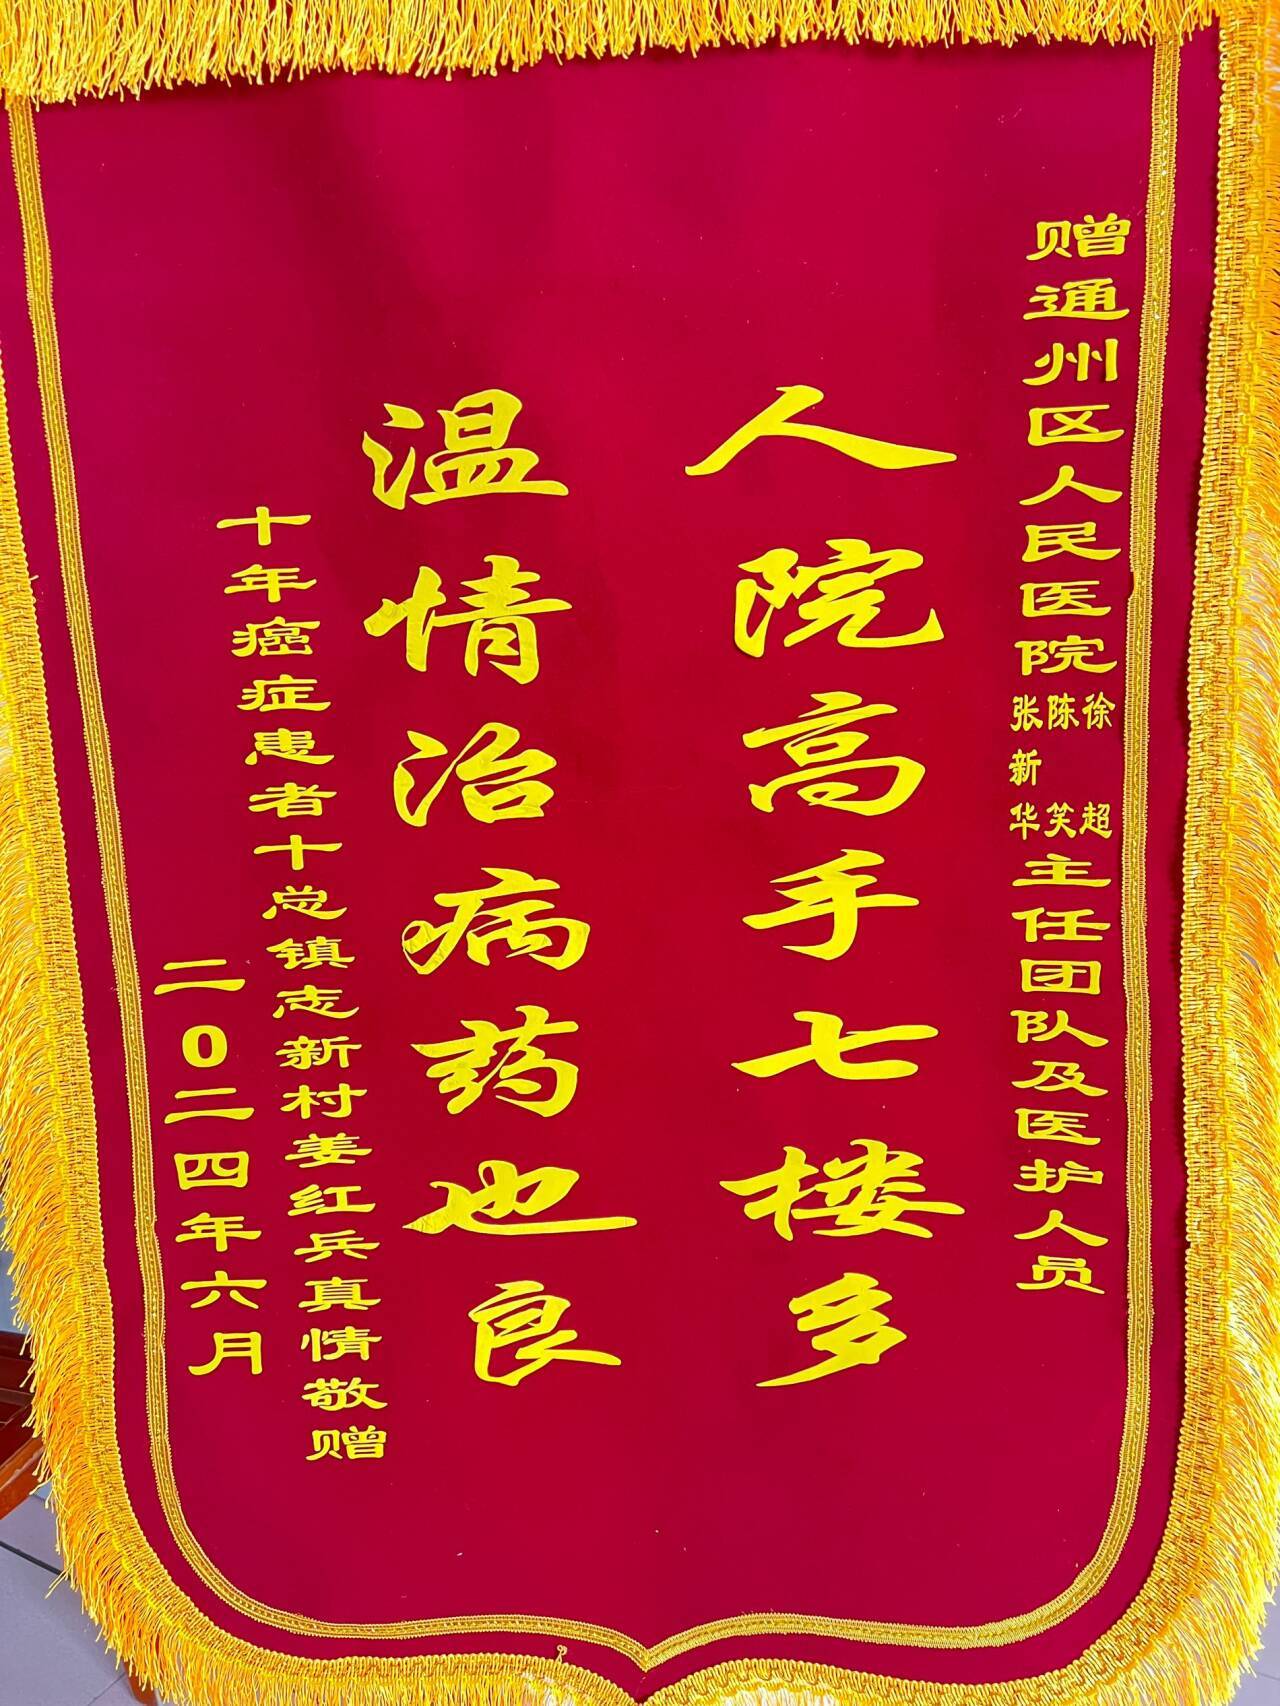 赠通州区人民医院徐超陈笑张新华主任团队及医护人员
人院高手七楼多
温情治病药也良
十年癌症患者十总镇志新村姜红兵真情敬赠
二0二四年六月